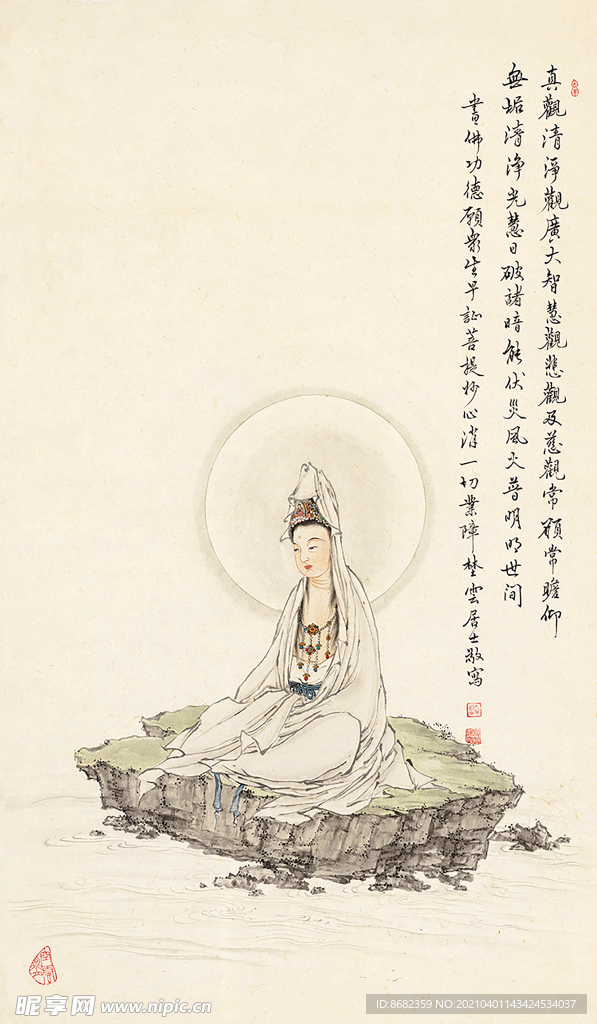 真觀清淨觀廣大智慧觀悲觀及慈觀常願常瞻仰
無垢清淨光慧日破諸暗能伏災風火普明照世间
畫佛功德願眾生早証菩提妙心消一切業障埜雲居士敬寫
昵享网 www.nipic.cn
ID:8682359 NO:20210401143424534037